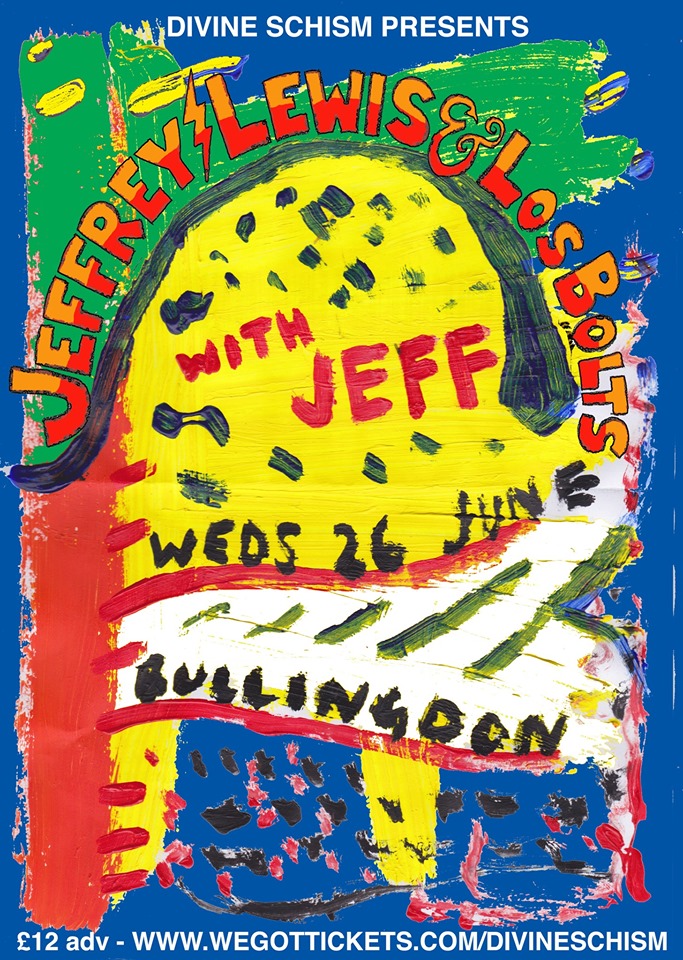 DIVINE SCHISM PRESENTS
JEFFREY LEWIS & LOS BOLTS
WITH JEFF
WEDS 26 JUNE
BULLINGDON
£12 adv - WWW.WEGOTTICKETS.COM/DIVINESCHISM